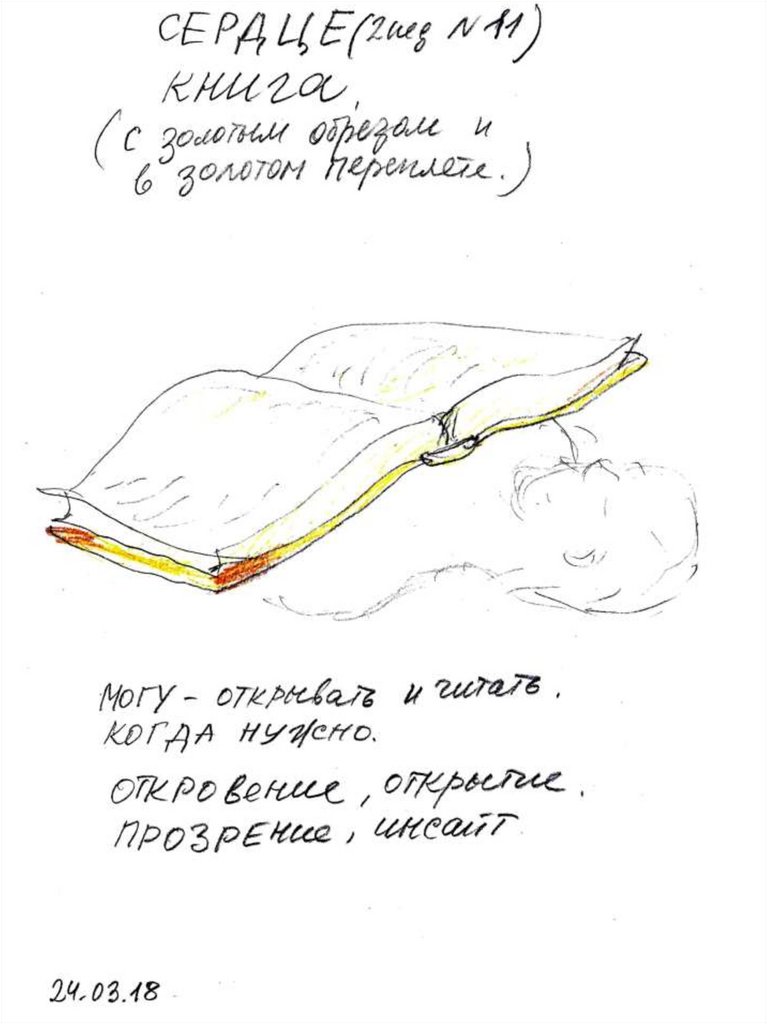 СЕРДЦЕ (2 мед N 11)
КНИГА
(с золотым обрезом и
в золотом переплете.)
МОГУ - открывать и читать.
КОГДА НУЖНО.
ОТКРОВЕНИЕ, открытие.
ПРОЗРЕНИЕ, инсайт
24.03.18